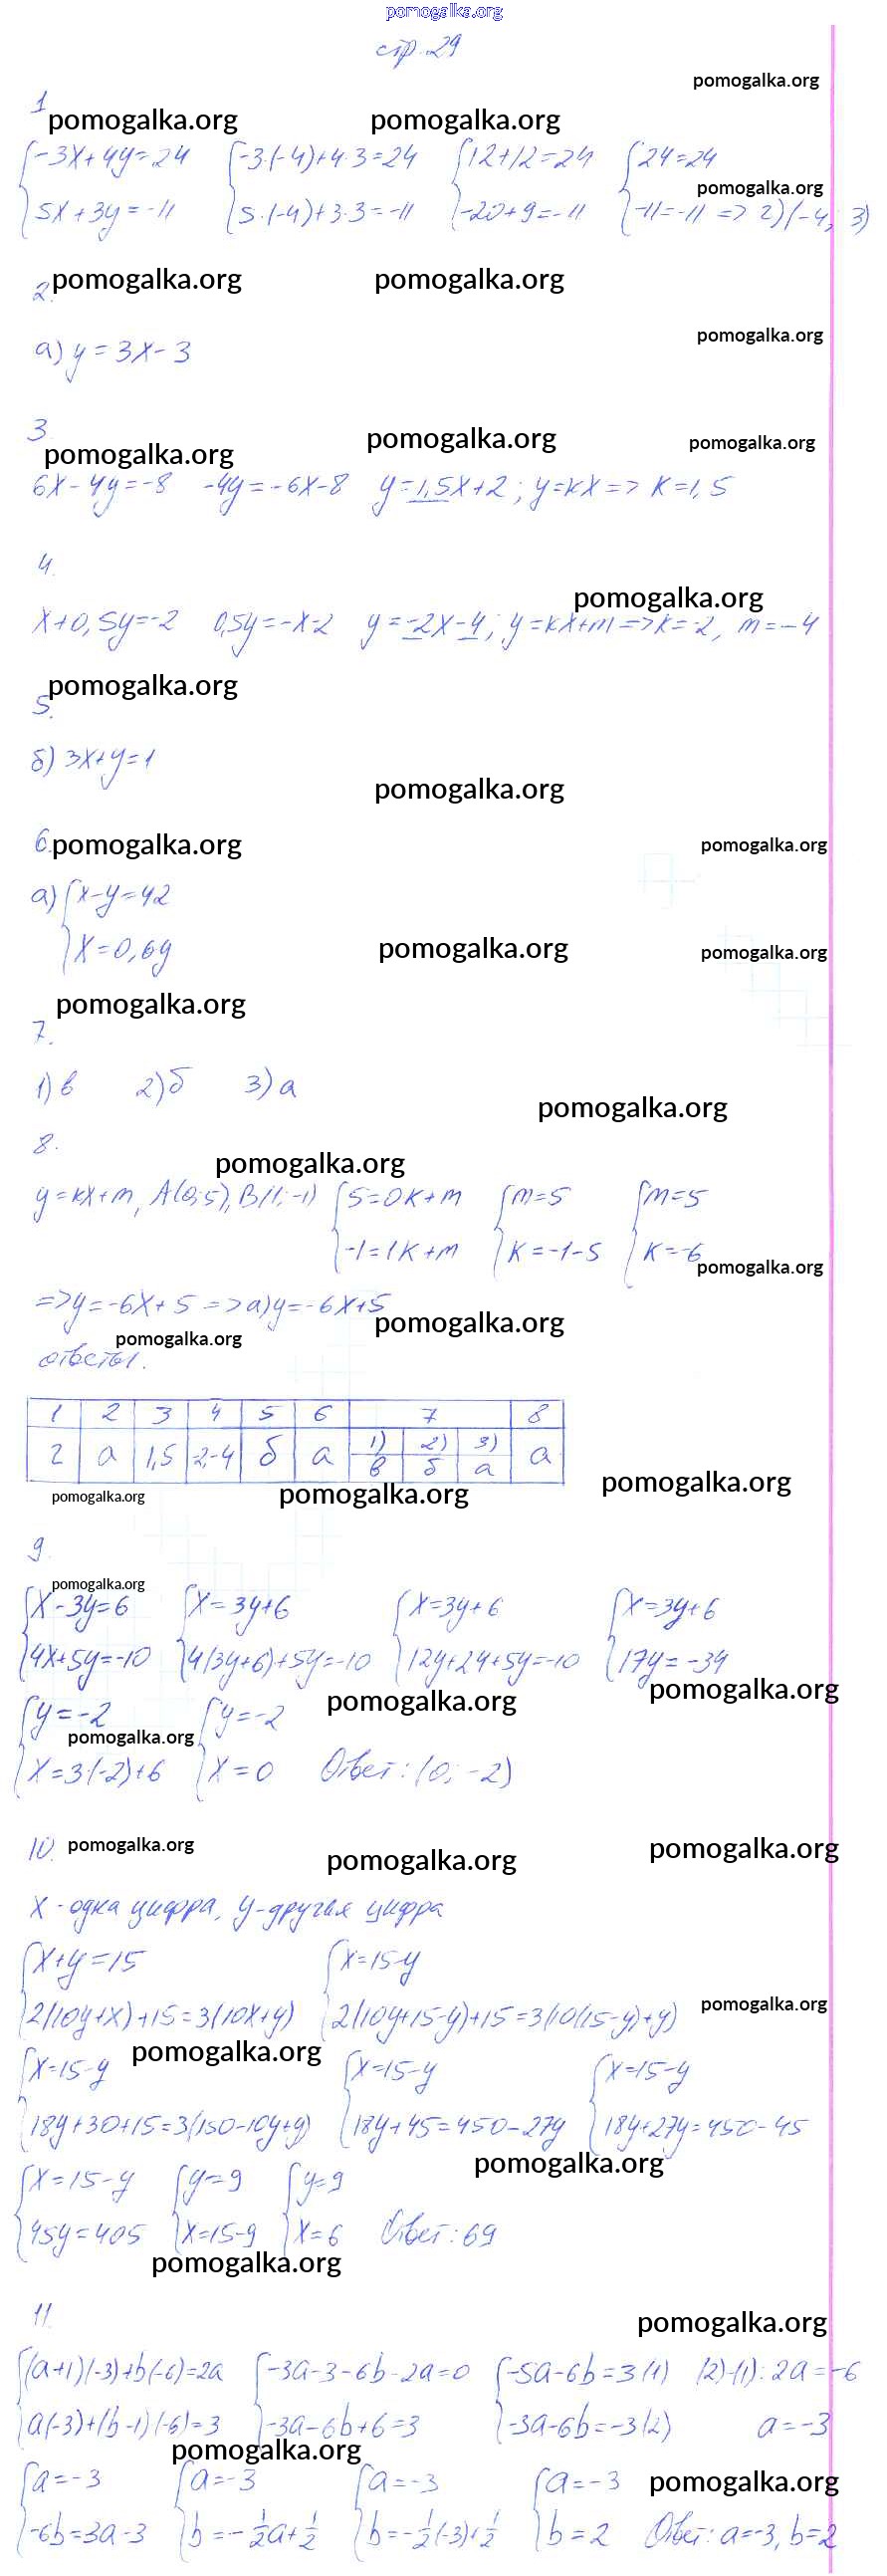 pomogalka.org
стр. 29
pomogalka.org
1
pomogalka.org pomogalka.org
{-3x+4y=24 {-3·(-4)+4·3=24 {12+12=24 {24=24
pomogalka.org
5x+3y=-11 5·(-4)+3·3=-11 -20+9=-11 -11=-11 => 2)(-4; 3)
2. pomogalka.org pomogalka.org
pomogalka.org
а) y=3x-3
3
pomogalka.org pomogalka.org pomogalka.org
6x-4y=-8 -4y=-6x-8 y=1,5x+2; y=kx => k=1,5
4.
pomogalka.org
x+0,5y=-2 0,5y=-x-2 y=-2x-4; y=kx+m => k=-2, m=-4
pomogalka.org
5.
б) 3x+y=1
pomogalka.org
6. pomogalka.org pomogalka.org
а) {x-y=42
x=0,6y pomogalka.org pomogalka.org
pomogalka.org
7.
1) в 2) б 3) а
pomogalka.org
8.
pomogalka.org
y=kx+m, A(0;5), B(1;-1) {5=0k+m {m=5 {m=5
-1=1k+m k=-1-5 k=-6
pomogalka.org
=> y=-6x+5 => а) y=-6x+5
pomogalka.org
pomogalka.org
ответы.
1 2 3 4 5 6 7 8
2 а 1,5 -2;-4 б а 1) 2) 3) а
в б а
pomogalka.org pomogalka.org pomogalka.org
9.
pomogalka.org
{x-3y=6 {x=3y+6 {x=3y+6 {x=3y+6
4x+5y=-10 4(3y+6)+5y=-10 12y+24+5y=-10 17y=-34
pomogalka.org pomogalka.org
{y=-2 {y=-2
pomogalka.org
x=3·(-2)+6 x=0 Ответ: (0; -2)
10. pomogalka.org pomogalka.org pomogalka.org
x - одна цифра, y - другая цифра
{x+y=15 {x=15-y
2(10y+x)+15=3(10x+y) 2(10y+15-y)+15=3(10(15-y)+y) pomogalka.org
pomogalka.org
{x=15-y {x=15-y {x=15-y
18y+30+15=3(150-10y+y) 18y+45=450-27y 18y+27y=450-45
pomogalka.org
{x=15-y {y=9 {y=9
45y=405 x=15-9 x=6 Ответ: 69
pomogalka.org
11.
pomogalka.org
{(a+1)(-3)+b(-6)=2a {-3a-3-6b-2a=0 {-5a-6b=3 (1) (2)-(1): 2a=-6
a(-3)+(b-1)(-6)=3 -3a-6b+6=3 -3a-6b=-3 (2) a=-3
pomogalka.org
{a=-3 {a=-3 {a=-3 {a=-3 pomogalka.org
-6b=3a-3 b=-1/2a+1/2 b=-1/2(-3)+1/2 b=2 Ответ: a=-3, b=2